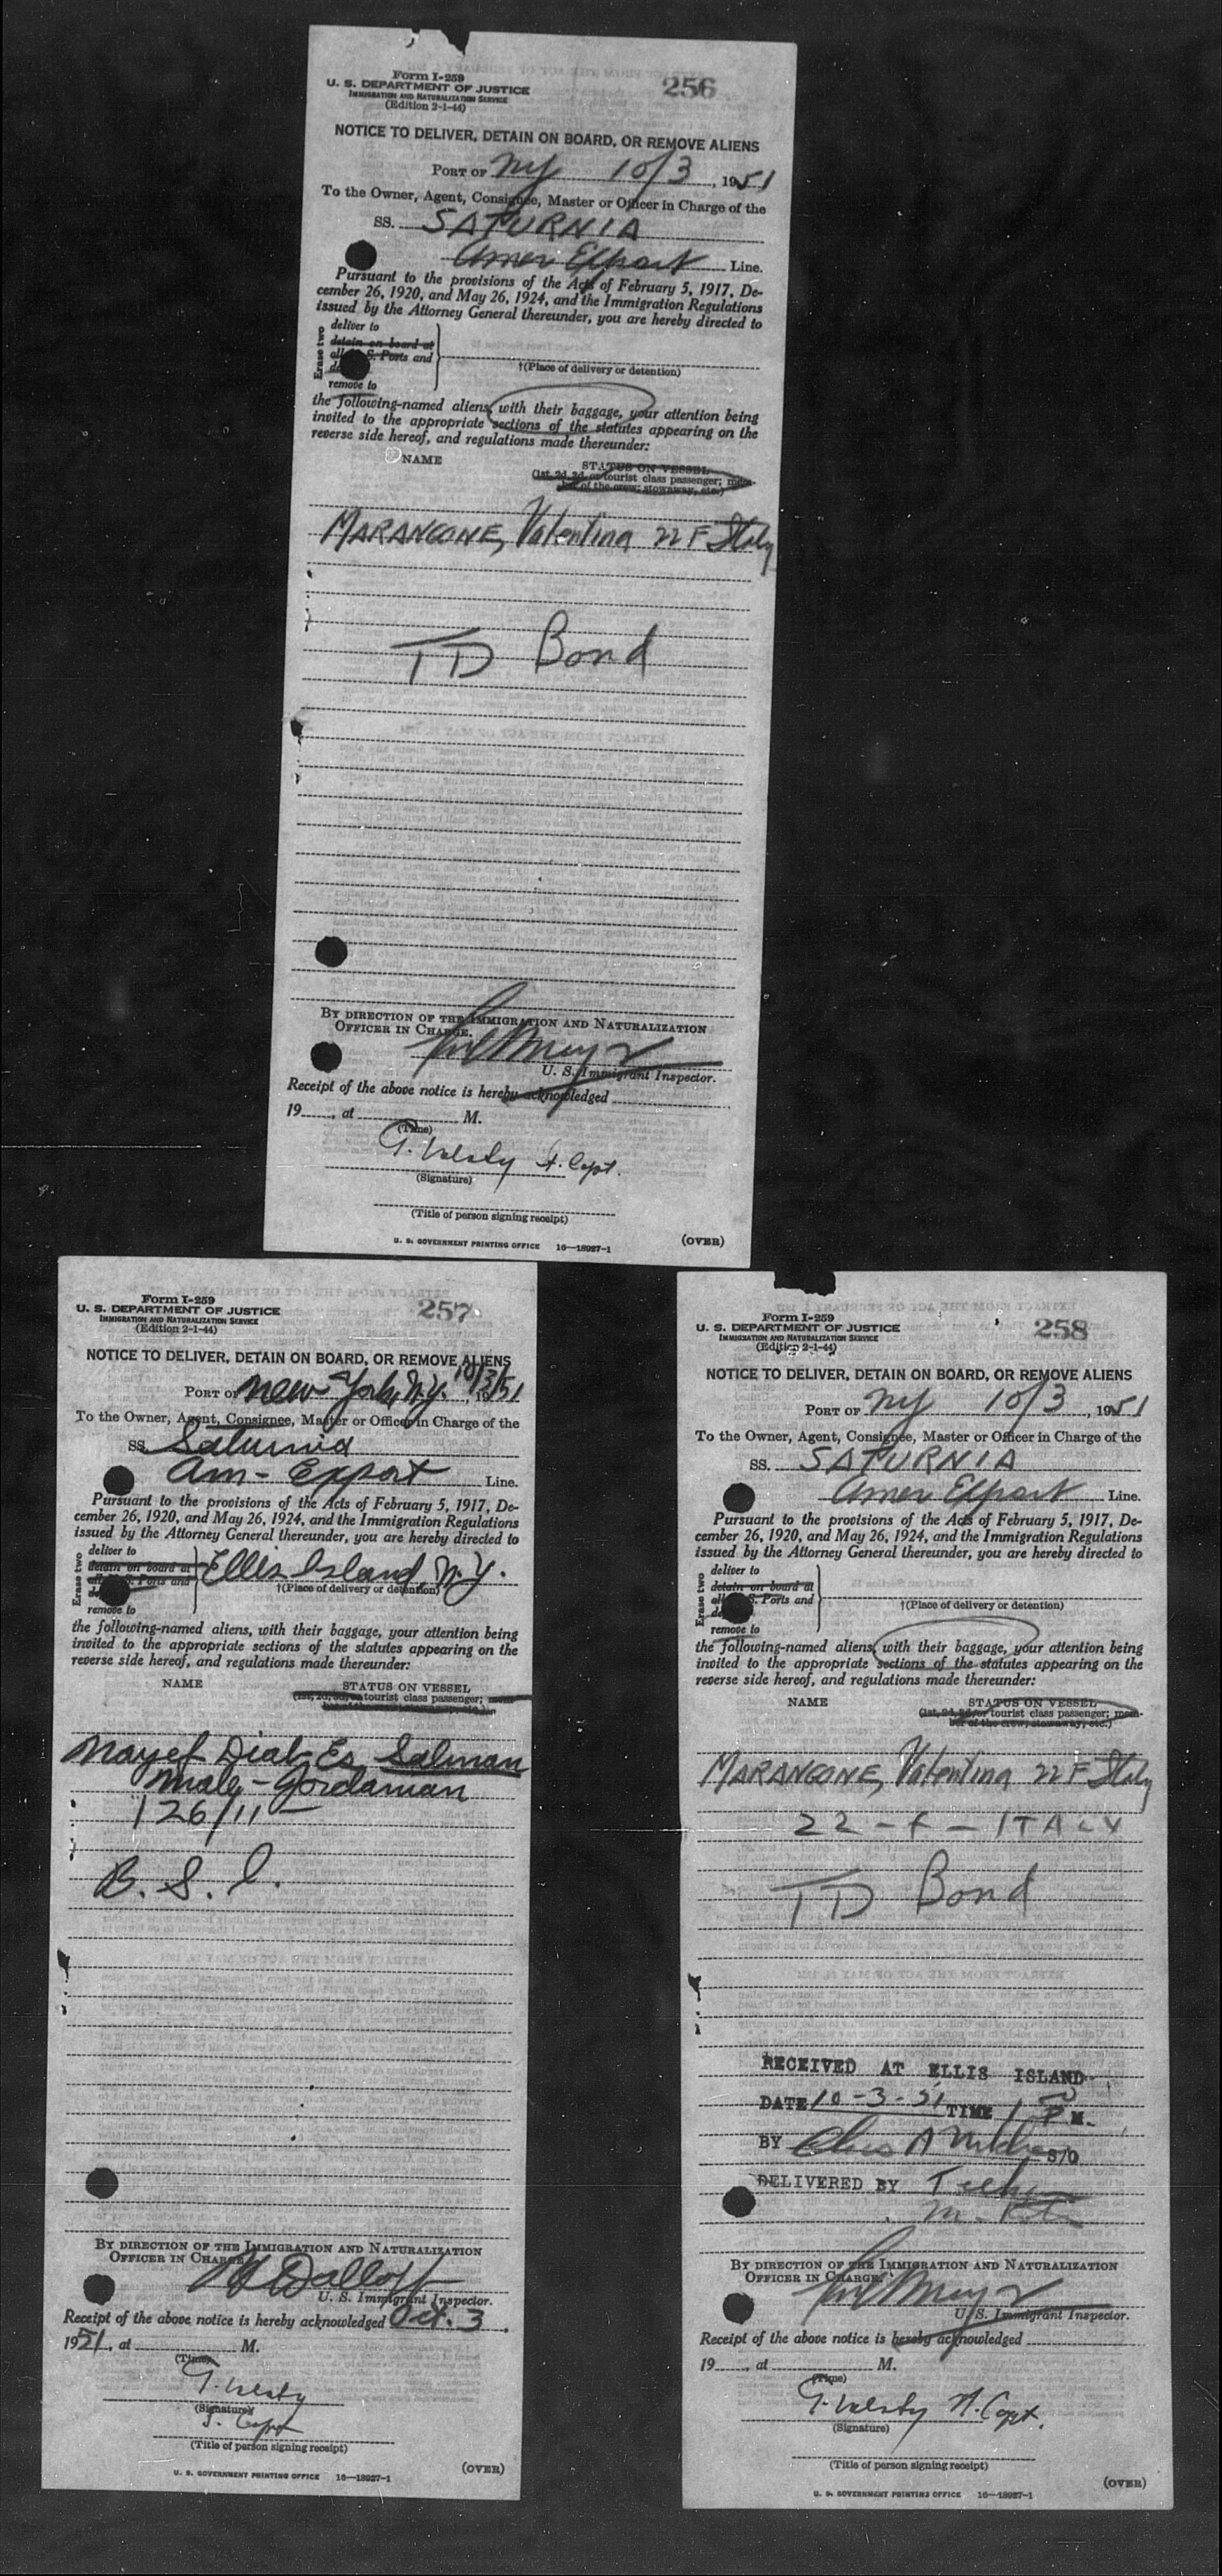 Form I-259
U. S. DEPARTMENT OF JUSTICE
IMMIGRATION AND NATURALIZATION SERVICE
(Edition 2-1-44)
256
NOTICE TO DELIVER, DETAIN ON BOARD, OR REMOVE ALIENS
PORT OF NY 10/3, 1951
To the Owner, Agent, Consignee, Master or Officer in Charge of the
SS. SATURNIA
Amer Export Line.
Pursuant to the provisions of the Acts of February 5, 1917, De-
cember 26, 1920, and May 26, 1924, and the Immigration Regulations
issued by the Attorney General thereunder, you are hereby directed to
Erase two
deliver to
detain on board at
all U. S. Ports and
remove to
†(Place of delivery or detention)
the following-named aliens, with their baggage, your attention being
invited to the appropriate sections of the statutes appearing on the
reverse side hereof, and regulations made thereunder:
NAME
STATUS ON VESSEL
(1st, 2d, 3d, or tourist class passenger; mem-
ber of the crew; stowaway, etc.)
MARANGONE, Valentina 22 F Italy
TD Bond
BY DIRECTION OF THE IMMIGRATION AND NATURALIZATION
OFFICER IN CHARGE.
U. S. Immigrant Inspector.
Receipt of the above notice is hereby acknowledged
19 , at M.
(Time)
(Signature)
(Title of person signing receipt)
U. S. GOVERNMENT PRINTING OFFICE 16—18927-1
(OVER)
Form I-259
U. S. DEPARTMENT OF JUSTICE
IMMIGRATION AND NATURALIZATION SERVICE
(Edition 2-1-44)
257
NOTICE TO DELIVER, DETAIN ON BOARD, OR REMOVE ALIENS
PORT OF New York, N.Y. 10/3/51, 19
To the Owner, Agent, Consignee, Master or Officer in Charge of the
SS. Saturnia
Am- Export Line.
Pursuant to the provisions of the Acts of February 5, 1917, De-
cember 26, 1920, and May 26, 1924, and the Immigration Regulations
issued by the Attorney General thereunder, you are hereby directed to
Erase two
deliver to
detain on board at
all U. S. Ports and
remove to
Ellis Island, N.Y.
†(Place of delivery or detention)
the following-named aliens, with their baggage, your attention being
invited to the appropriate sections of the statutes appearing on the
reverse side hereof, and regulations made thereunder:
NAME
STATUS ON VESSEL
(1st, 2d, 3d, or tourist class passenger; mem-
ber of the crew; stowaway, etc.)
Nayef Diab Es Salman
Male - Jordanian
126/11 -
B. S. I.
BY DIRECTION OF THE IMMIGRATION AND NATURALIZATION
OFFICER IN CHARGE.
U. S. Immigrant Inspector.
Receipt of the above notice is hereby acknowledged Oct. 3,
1951, at M.
(Time)
(Signature)
(Title of person signing receipt)
U. S. GOVERNMENT PRINTING OFFICE 16—18927-1
(OVER)
Form I-259
U. S. DEPARTMENT OF JUSTICE
IMMIGRATION AND NATURALIZATION SERVICE
(Edition 2-1-44)
258
NOTICE TO DELIVER, DETAIN ON BOARD, OR REMOVE ALIENS
PORT OF NY 10/3, 1951
To the Owner, Agent, Consignee, Master or Officer in Charge of the
SS. SATURNIA
Amer Export Line.
Pursuant to the provisions of the Acts of February 5, 1917, De-
cember 26, 1920, and May 26, 1924, and the Immigration Regulations
issued by the Attorney General thereunder, you are hereby directed to
Erase two
deliver to
detain on board at
all U. S. Ports and
remove to
†(Place of delivery or detention)
the following-named aliens, with their baggage, your attention being
invited to the appropriate sections of the statutes appearing on the
reverse side hereof, and regulations made thereunder:
NAME
STATUS ON VESSEL
(1st, 2d, 3d, or tourist class passenger; mem-
ber of the crew; stowaway, etc.)
MARANGONE, Valentina 22 F Italy
22 - F - ITALY
TD Bond
RECEIVED AT ELLIS ISLAND
DATE 10-3-51 TIME 1 P M.
BY S/O
DELIVERED BY
BY DIRECTION OF THE IMMIGRATION AND NATURALIZATION
OFFICER IN CHARGE.
U. S. Immigrant Inspector.
Receipt of the above notice is hereby acknowledged
19 , at M.
(Time)
(Signature)
(Title of person signing receipt)
U. S. GOVERNMENT PRINTING OFFICE 16—18927-1
(OVER)